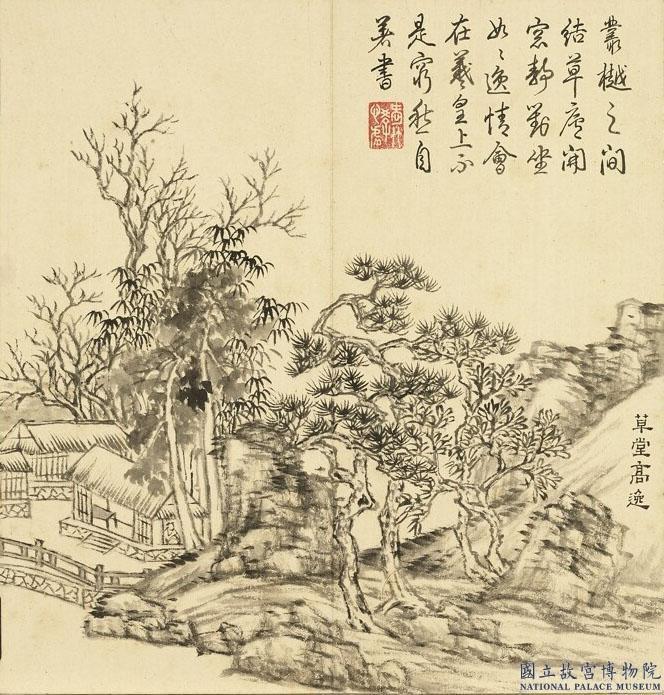 叢樾之间
结草庐開
窓靜對坐
如〻逸情會
在羲皇上不
是窮愁自
著書
草堂高逸
國立故宮博物院
NATIONAL PALACE MUSEUM